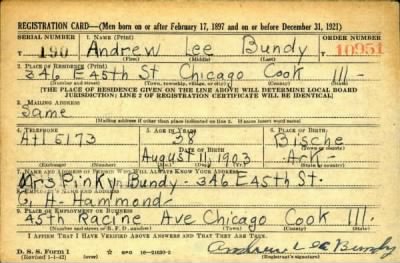 REGISTRATION CARD—(Men born on or after February 17, 1897 and on or before December 31, 1921)
SERIAL NUMBER 1. NAME (Print) ORDER NUMBER
T 190 Andrew Lee Bundy T 10951
(First) (Middle) (Last)
2. PLACE OF RESIDENCE (Print)
346 E 45th St Chicago Cook Ill-
(Number and street) (Town, township, village, or city) (County) (State)
[THE PLACE OF RESIDENCE GIVEN ON THE LINE ABOVE WILL DETERMINE LOCAL BOARD
JURISDICTION; LINE 2 OF REGISTRATION CERTIFICATE WILL BE IDENTICAL]
3. MAILING ADDRESS
Same
[Mailing address if other than place indicated on line 2. If same insert word same]
4. TELEPHONE 5. AGE IN YEARS 6. PLACE OF BIRTH
Atl 6173 38 Bische
DATE OF BIRTH (Town or county)
August 11, 1903 Ark-
(Exchange) (Number) (Mo.) (Day) (Yr.) (State or country)
7. NAME AND ADDRESS OF PERSON WHO WILL ALWAYS KNOW YOUR ADDRESS
Mrs Pinky Bundy- 346 E 45th St.
8. EMPLOYER'S NAME AND ADDRESS
G. H- Hammond
9. PLACE OF EMPLOYMENT OR BUSINESS
45th Racine Ave Chicago Cook Ill.
(Number and street or R. F. D. number) (Town) (County) (State)
I AFFIRM THAT I HAVE VERIFIED ABOVE ANSWERS AND THAT THEY ARE TRUE.
D. S. S. Form 1 Andrew Lee Bundy
(Revised 1-1-42) (over) (Registrant's signature)